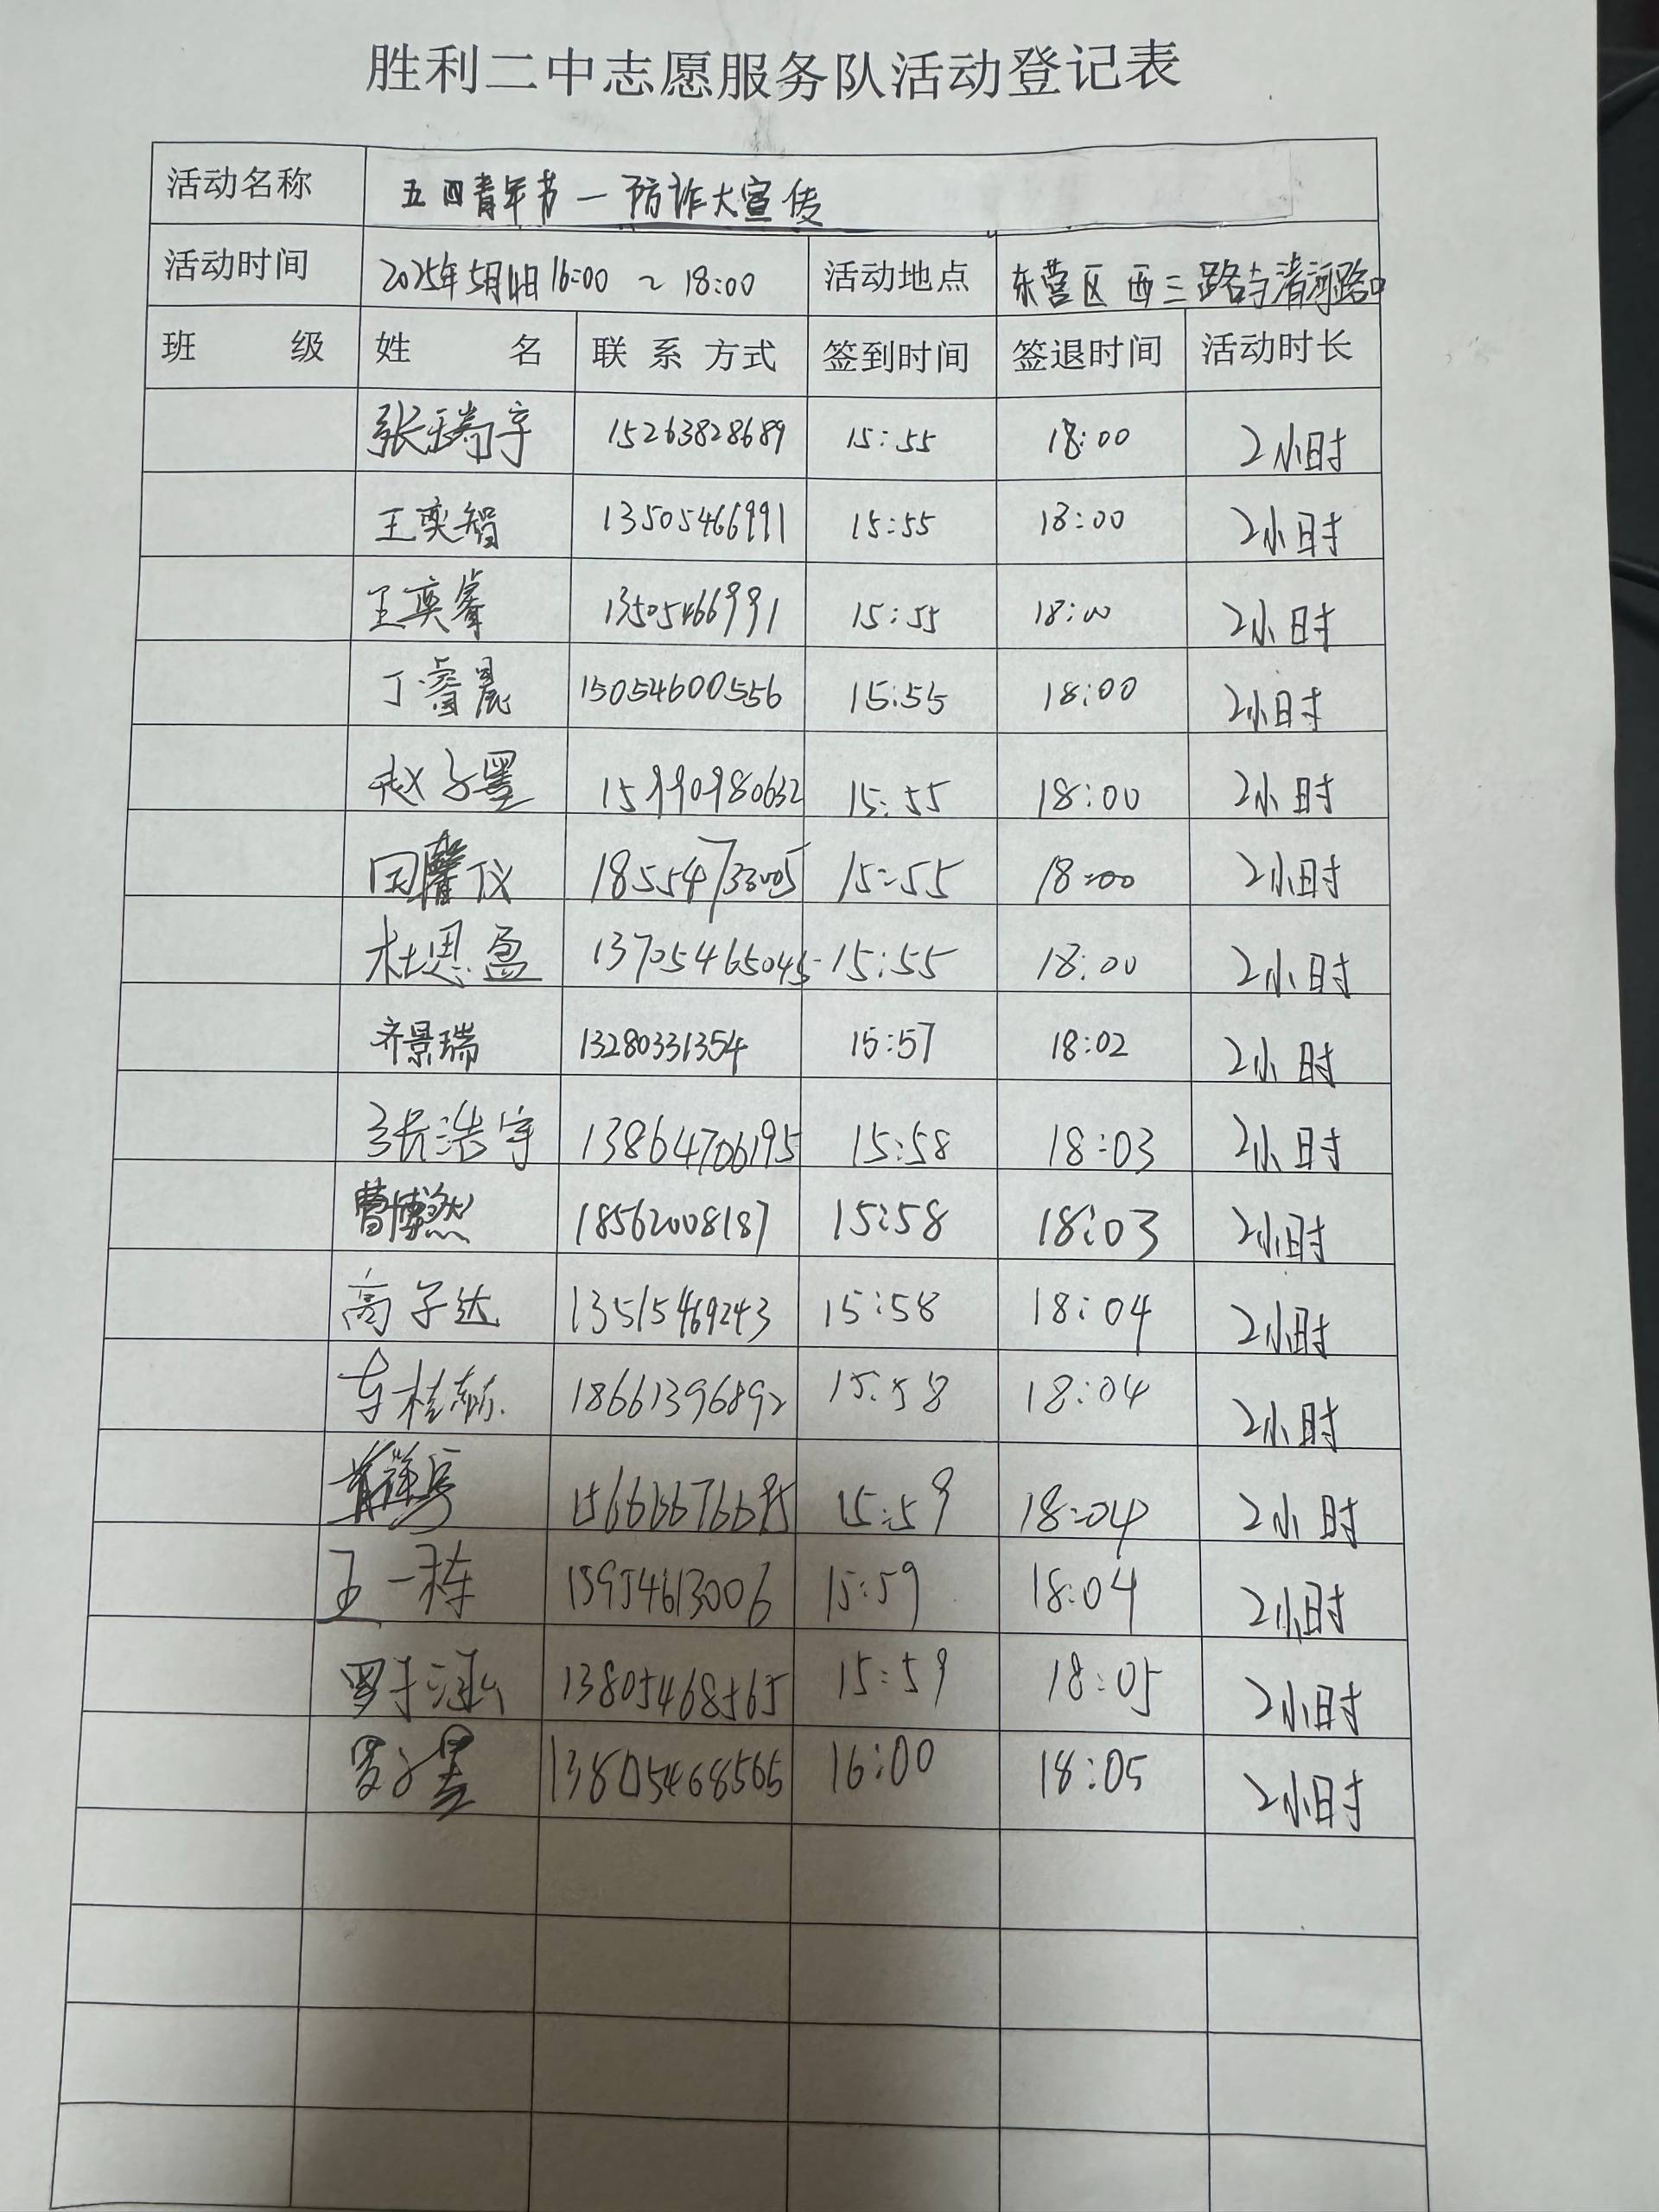 胜利二中志愿服务队活动登记表
活动名称 五四青年节一防诈大宣传
活动时间 2025年5月4日 16:00 ~ 18:00 活动地点 东营区西三路与清河路口
班 级 姓 名 联系方式 签到时间 签退时间 活动时长
张瑞宇 15263828689 15:55 18:00 2小时
王奕智 13505466991 15:55 18:00 2小时
王奕睿 13505466991 15:55 18:00 2小时
丁睿晨 15054600556 15:55 18:00 2小时
赵子墨 15990980632 15:55 18:00 2小时
国馨仪 18554733005 15:55 18:00 2小时
杜思盈 13705465045 15:55 18:00 2小时
齐景瑞 13280331354 15:57 18:02 2小时
张浩宇 13864706195 15:58 18:03 2小时
曹博然 18562008187 15:58 18:03 2小时
高子达 13515469243 15:58 18:04 2小时
车桂 18661396892 15:58 18:04 2小时
15666676695 15:59 18:04 2小时
王一栋 15954613006 15:59 18:04 2小时
罗子涵 13805468565 15:59 18:05 2小时
罗子墨 13805468565 16:00 18:05 2小时